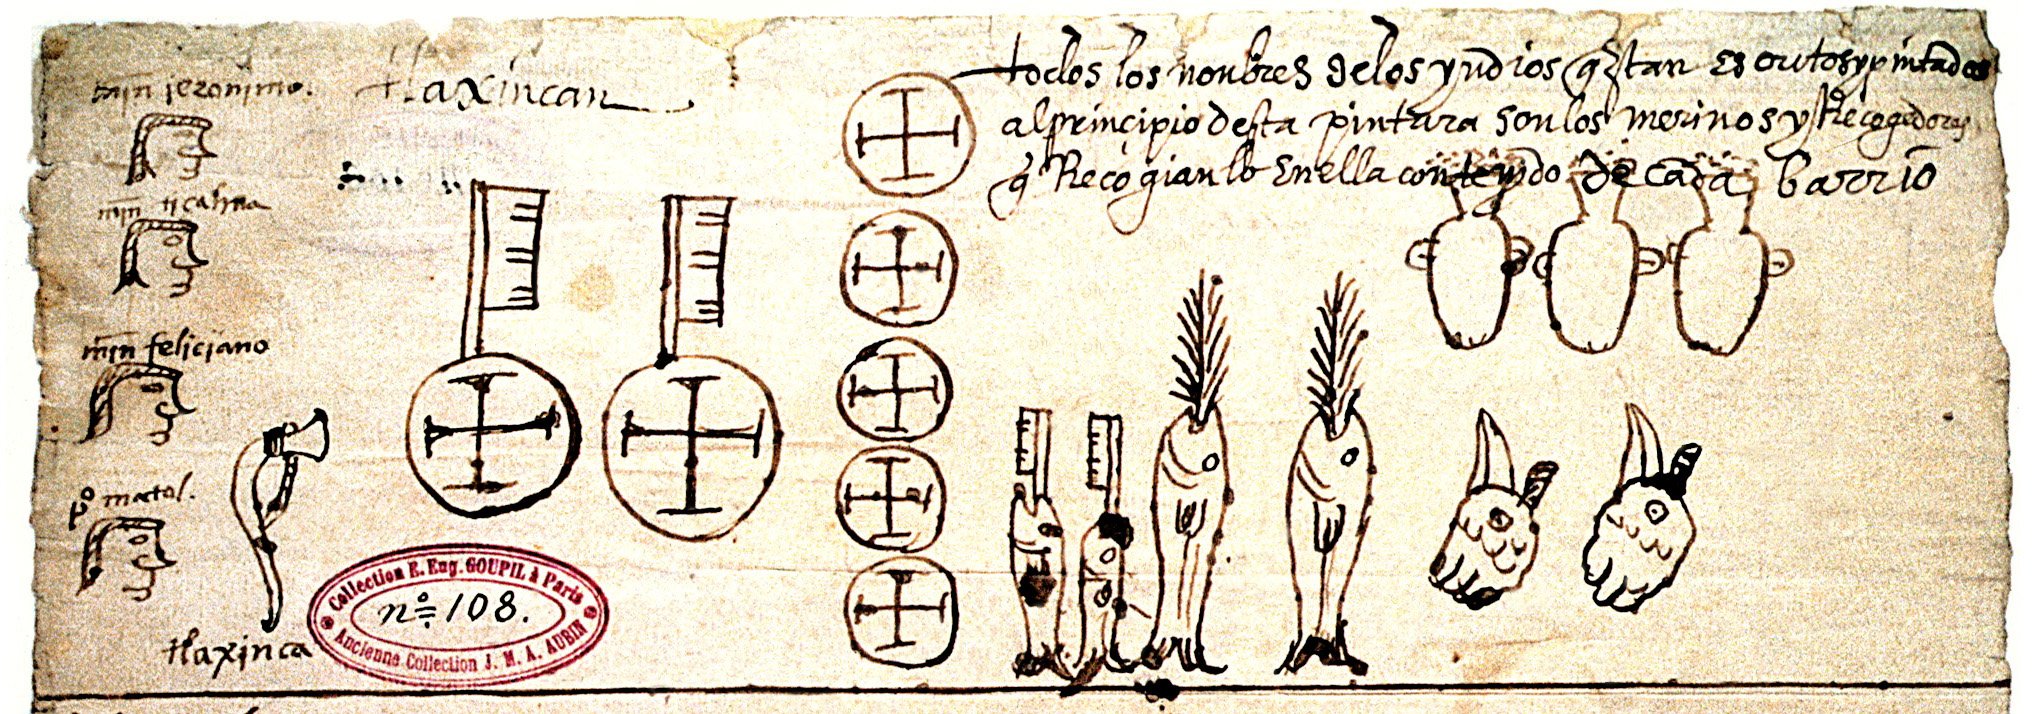 todos los nonbres delos yndios q̃ stan escritos y pintados
al principio desta pintara son los merinos y Recogedores
q̃ Recogian lo en ella contenydo de cada barrio
tlaxincan
min jeronimo.
min
min feliciano
po matol.
tlaxinca
Collection E. Eug. GOUPIL à Paris
nº 108.
Ancienne Collection J. M. A. AUBIN